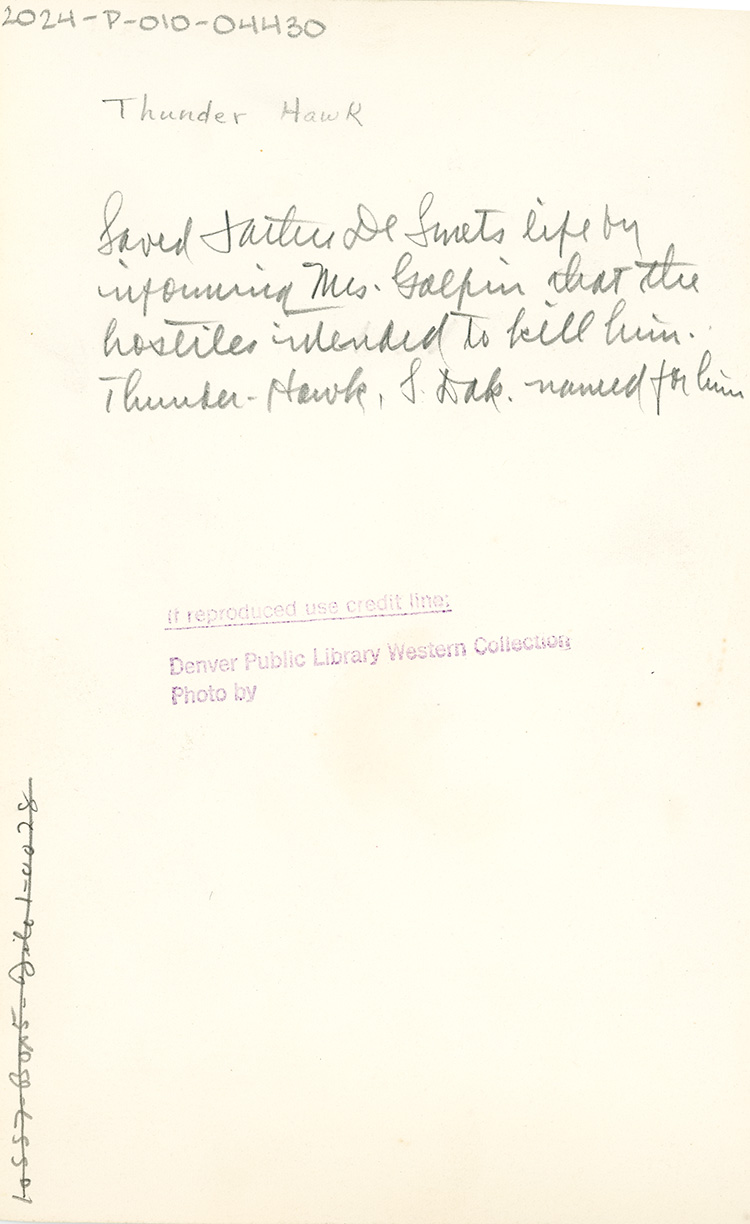 2024-P-010-04430
Thunder Hawk
Saved Father De Smets life by
informing Mrs. Galpin that the
hostiles intended to kill him.
Thunder-Hawk, S. Dak. named for him
If reproduced use credit line:
Denver Public Library Western Collection
Photo by
10557-Box5-